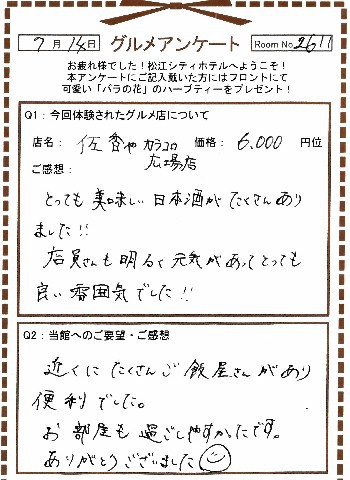 7月14日 グルメアンケート Room No.2611
お疲れ様でした！松江シティホテルへようこそ！
本アンケートにご記入戴いた方にはフロントにて
可愛い「バラの花」のハーブティーをプレゼント！
Q1：今回体験されたグルメ店について
店名： 佐香や カラコロ 価格： 6,000 円位
広場店
ご感想：
とっても美味しい日本酒がたくさんあり
ました!!
店員さんも明るく元気があってとっても
良い雰囲気でした!!
Q2：当館へのご要望・ご感想
近くにたくさんご飯屋さんがあり
便利でした。
お部屋も過ごしやすかったです。
ありがとうございました